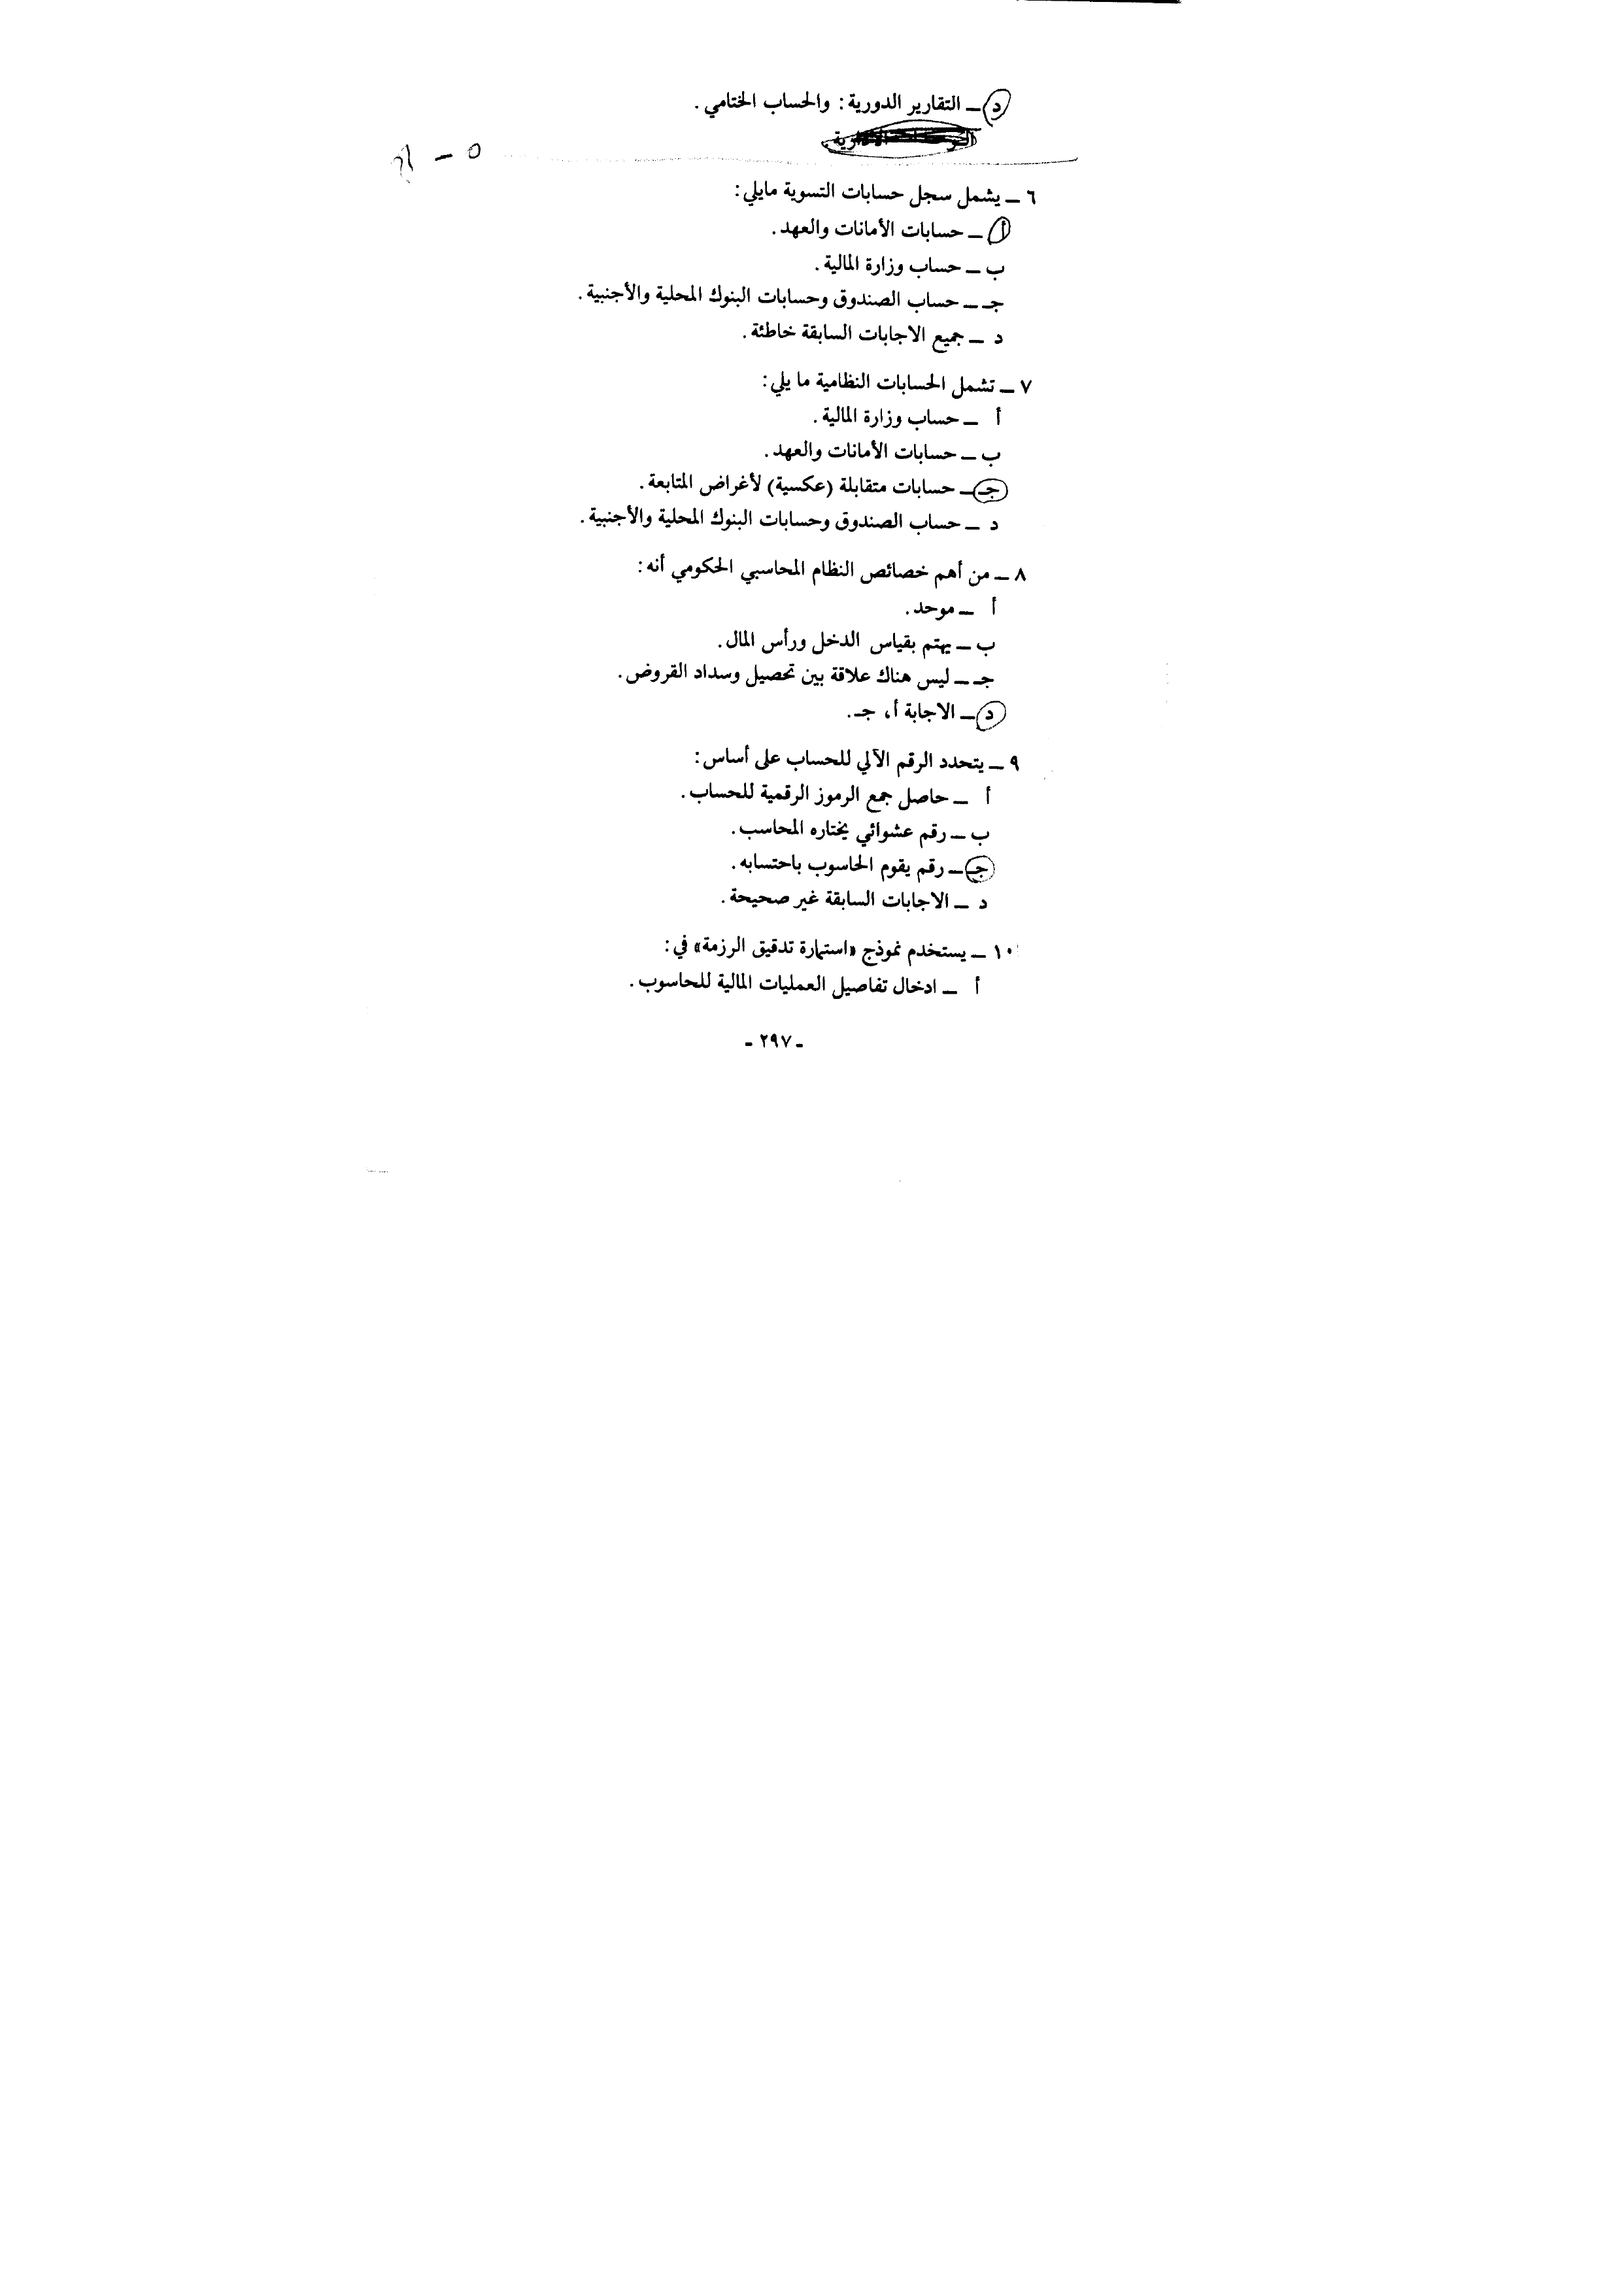 د ــ التقارير الدورية: والحساب الختامي.
٦ ــ يشمل سجل حسابات التسوية مايلي:
أ ــ حسابات الأمانات والعهد.
ب ــ حساب وزارة المالية.
جـ ــ حساب الصندوق وحسابات البنوك المحلية والأجنبية.
د ــ جميع الاجابات السابقة خاطئة.
٧ ــ تشمل الحسابات النظامية ما يلي:
أ ــ حساب وزارة المالية.
ب ــ حسابات الأمانات والعهد.
جـ ــ حسابات متقابلة (عكسية) لأغراض المتابعة.
د ــ حساب الصندوق وحسابات البنوك المحلية والأجنبية.
٨ ــ من أهم خصائص النظام المحاسبي الحكومي أنه:
أ ــ موحد.
ب ــ يهتم بقياس الدخل ورأس المال.
جـ ــ ليس هناك علاقة بين تحصيل وسداد القروض.
د ــ الاجابة أ، جـ.
٩ ــ يتحدد الرقم الآلي للحساب على أساس:
أ ــ حاصل جمع الرموز الرقمية للحساب.
ب ــ رقم عشوائي يختاره المحاسب.
جـ ــ رقم يقوم الحاسوب باحتسابه.
د ــ الاجابات السابقة غير صحيحة.
١٠ ــ يستخدم نموذج «استمارة تدقيق الرزمة» في:
أ ــ ادخال تفاصيل العمليات المالية للحاسوب.
- ٢٩٧ -